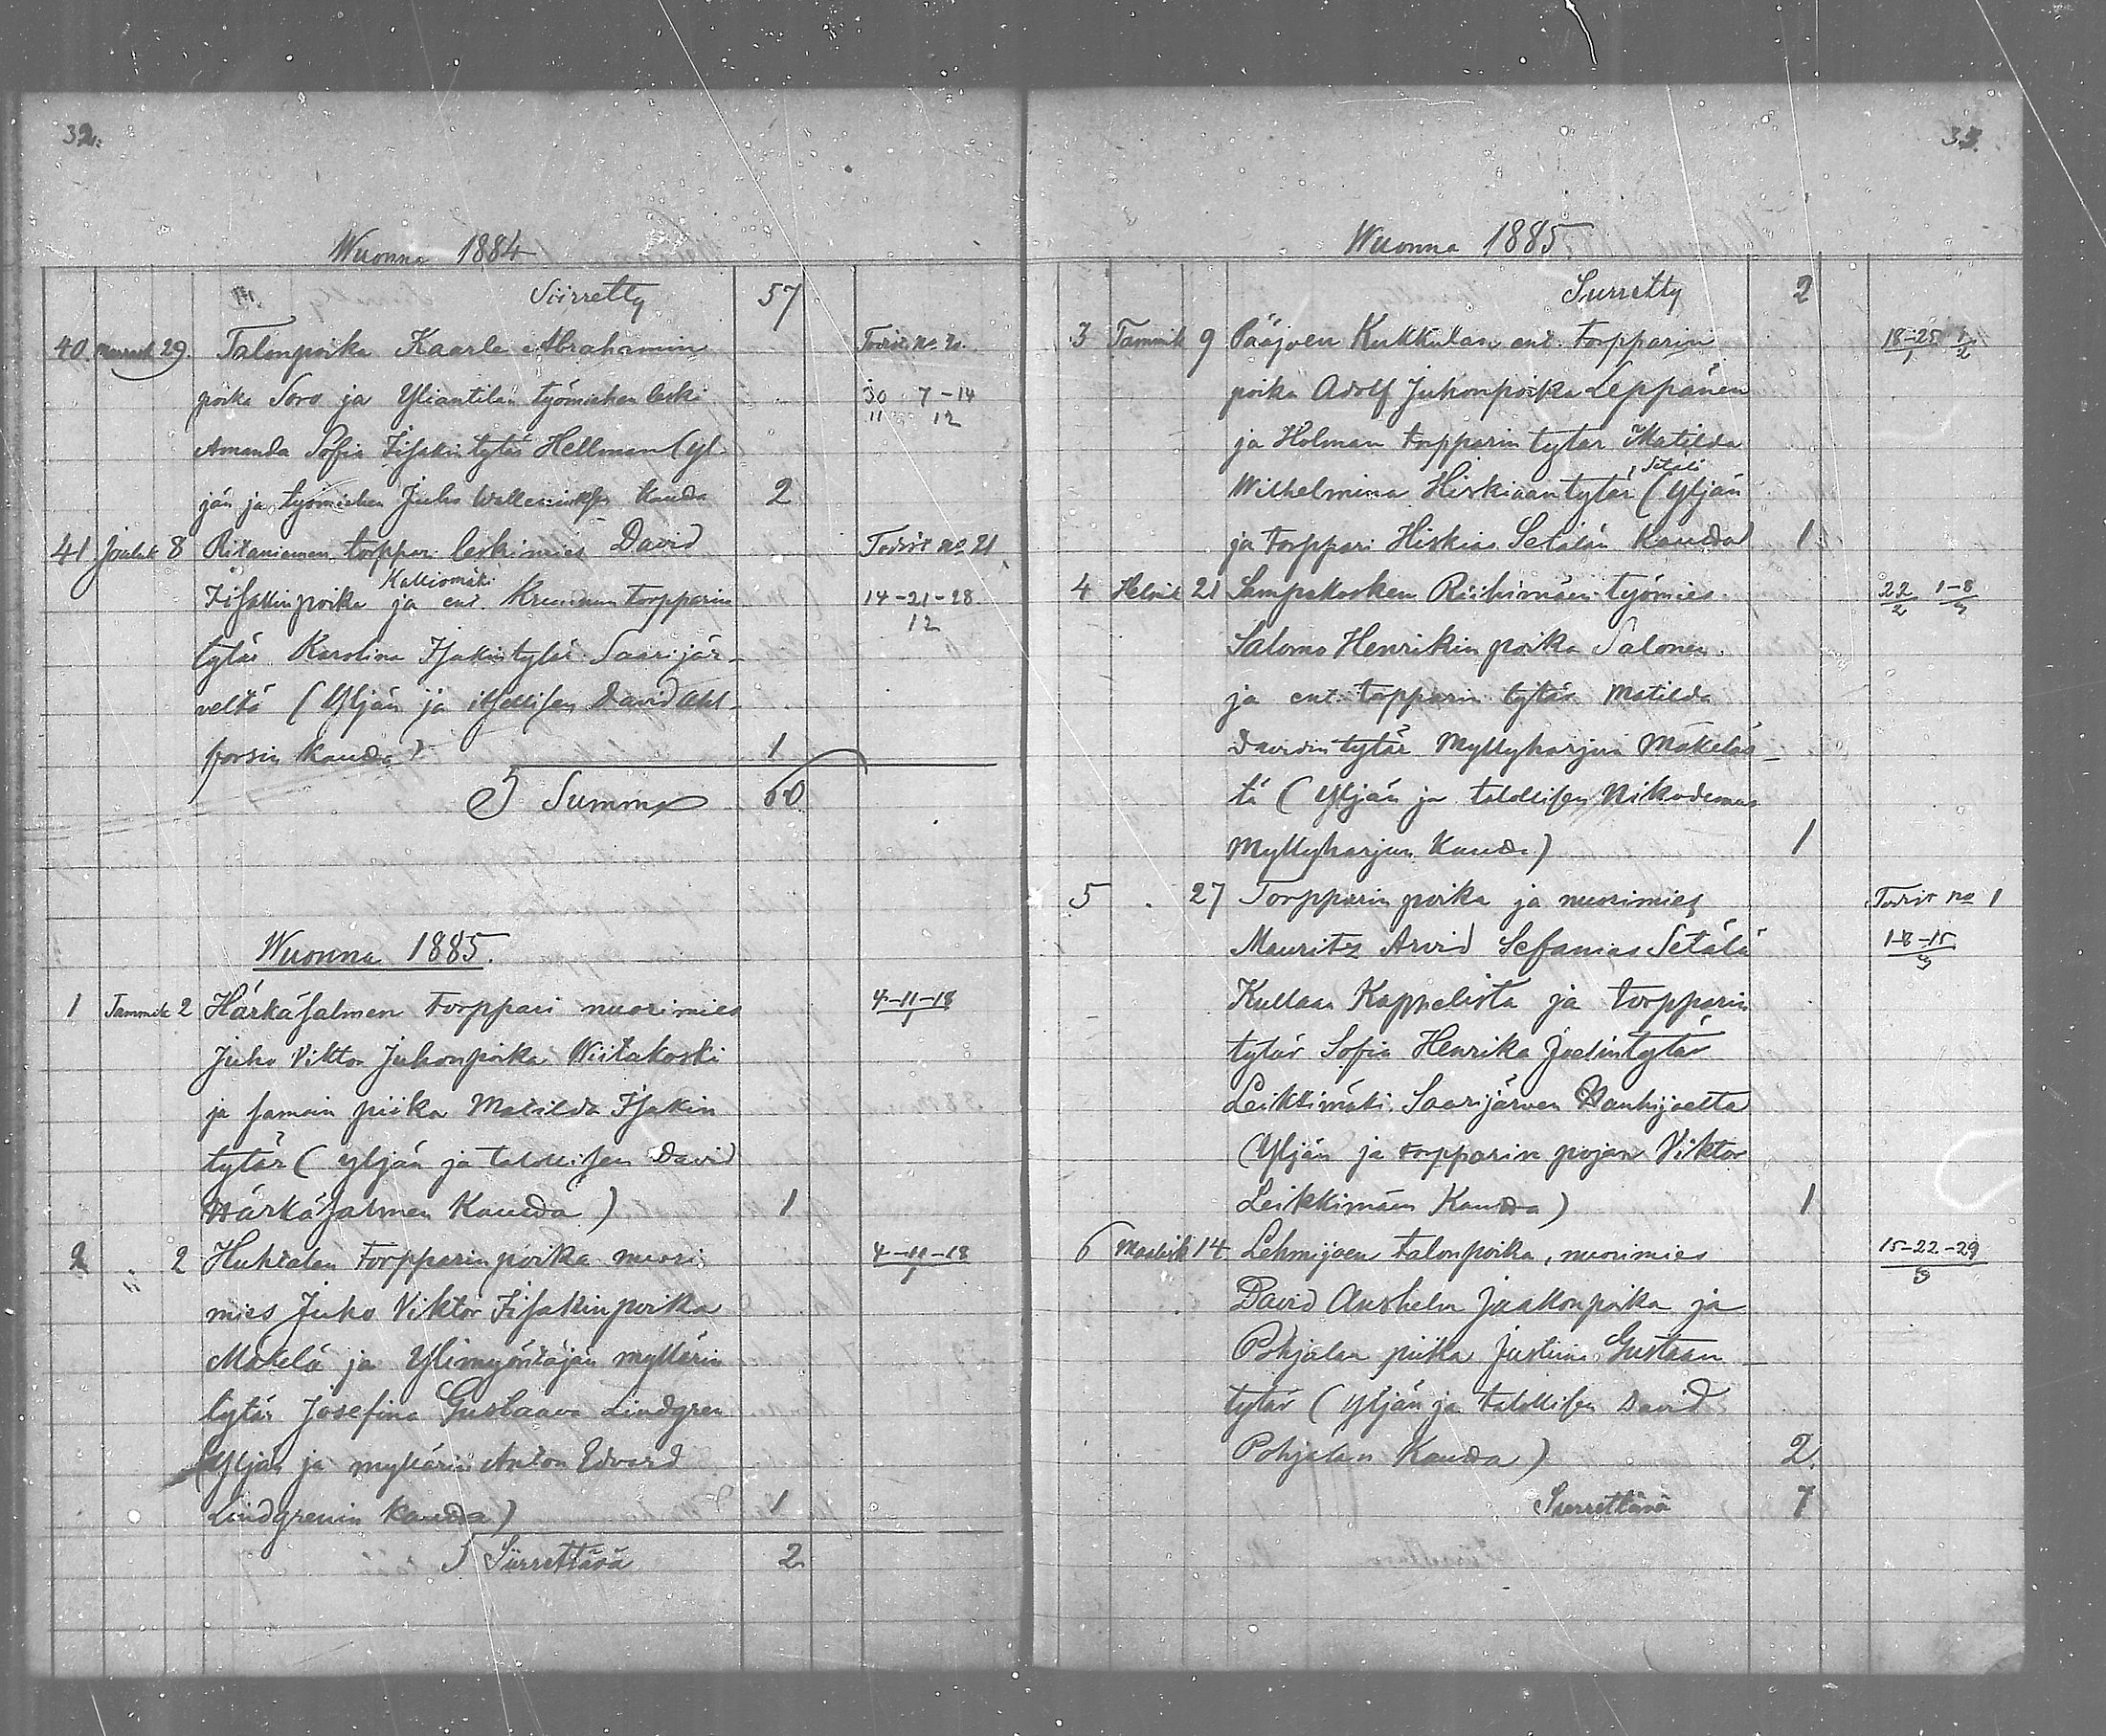 32.
Wuonna 1884
Siirretty 57
40 Marrask 29. Talonpoika Kaarle Abrahamin Todist. no 20.
poika Soro ja Yliantilan työmiehen leski 30/11 7-14/12
Amanda Sofia Iisakintytär Hellman (yl-
jän ja työmiehen Juho kauda 2
41 Jouluk 8 Ritaniemen torppar. leskimies David Todist no 21
Iisakinpoika Kalliomäki ja ent. torpparin 14-21-28/12
tytär Karolina Isakintytär Saarijär-
veltä (Yljän ja itsellisen David Ahl-
forsin kauda) 1
Summa 60
Wuonna 1885.
1 Tammik 2 Härkäsalmen torppari nuorimies 4-11-18/1
Juho Viktor Juhonpoika Wiitakoski
ja samain piika Matilda Isakin
tytär (yljän ja talollisen David
Härkäsalmen Kauda) 1
2 " 2 Huhtalan torpparinpoika nuori- 4-11-18/1
mies Juho Viktor Iisakinpoika
Mäkelä ja Ylimyöntäjän myllärin
tytär Josefina Gustaava Lindgren
(Yljän ja myllärin Anton Edvard
Lindgrenin kauda) 1
Siirrettävä 2
33.
Wuonna 1885
Siirretty 2
3 Tammik 9 Pääjoen Kukkulan ent. torpparin 18-25/1 1/2
poika Adolf Juhonpoika Leppänen
ja Holman torpparin tytär Matilda
Wilhelmina Hiskiaantytär Setälä (Yljän
ja torppari Hiskias Setälän kauda) 1
4 Helmik 21 Lampakosken Riihimäen työmies 22/2 1-8/3
Salomo Henrikin poika Salonen
ja ent. torpparin tytär Matilda
Davidintytär Myllyharjun Mäkeläs-
tä (Yljän ja talollisen Nikodemus
Myllyharjun kauda) 1
5 " 27 Torpparin poika ja nuorimies Todist no 1
Mauritz Arvid Sefanias Setälä 1-8-15/3
Kullaan Kappelista ja torpparin
tytär Sofia Henrika Joelintytär
Leikkimäki Saarijärven Wanhijoelta
(Yljän ja torpparin pojan Viktor
Leikkimäen Kauda) 1
6 Maalisk 14. Lehmijoen talonpoika, nuorimies 15-22-29/3
David Anshelm Jaakonpoika ja
Pohjalan piika Justiina Gustaan-
tytär (Yljän ja talollisen David
Pohjalan Kauda) 2.
Siirrettävä 7